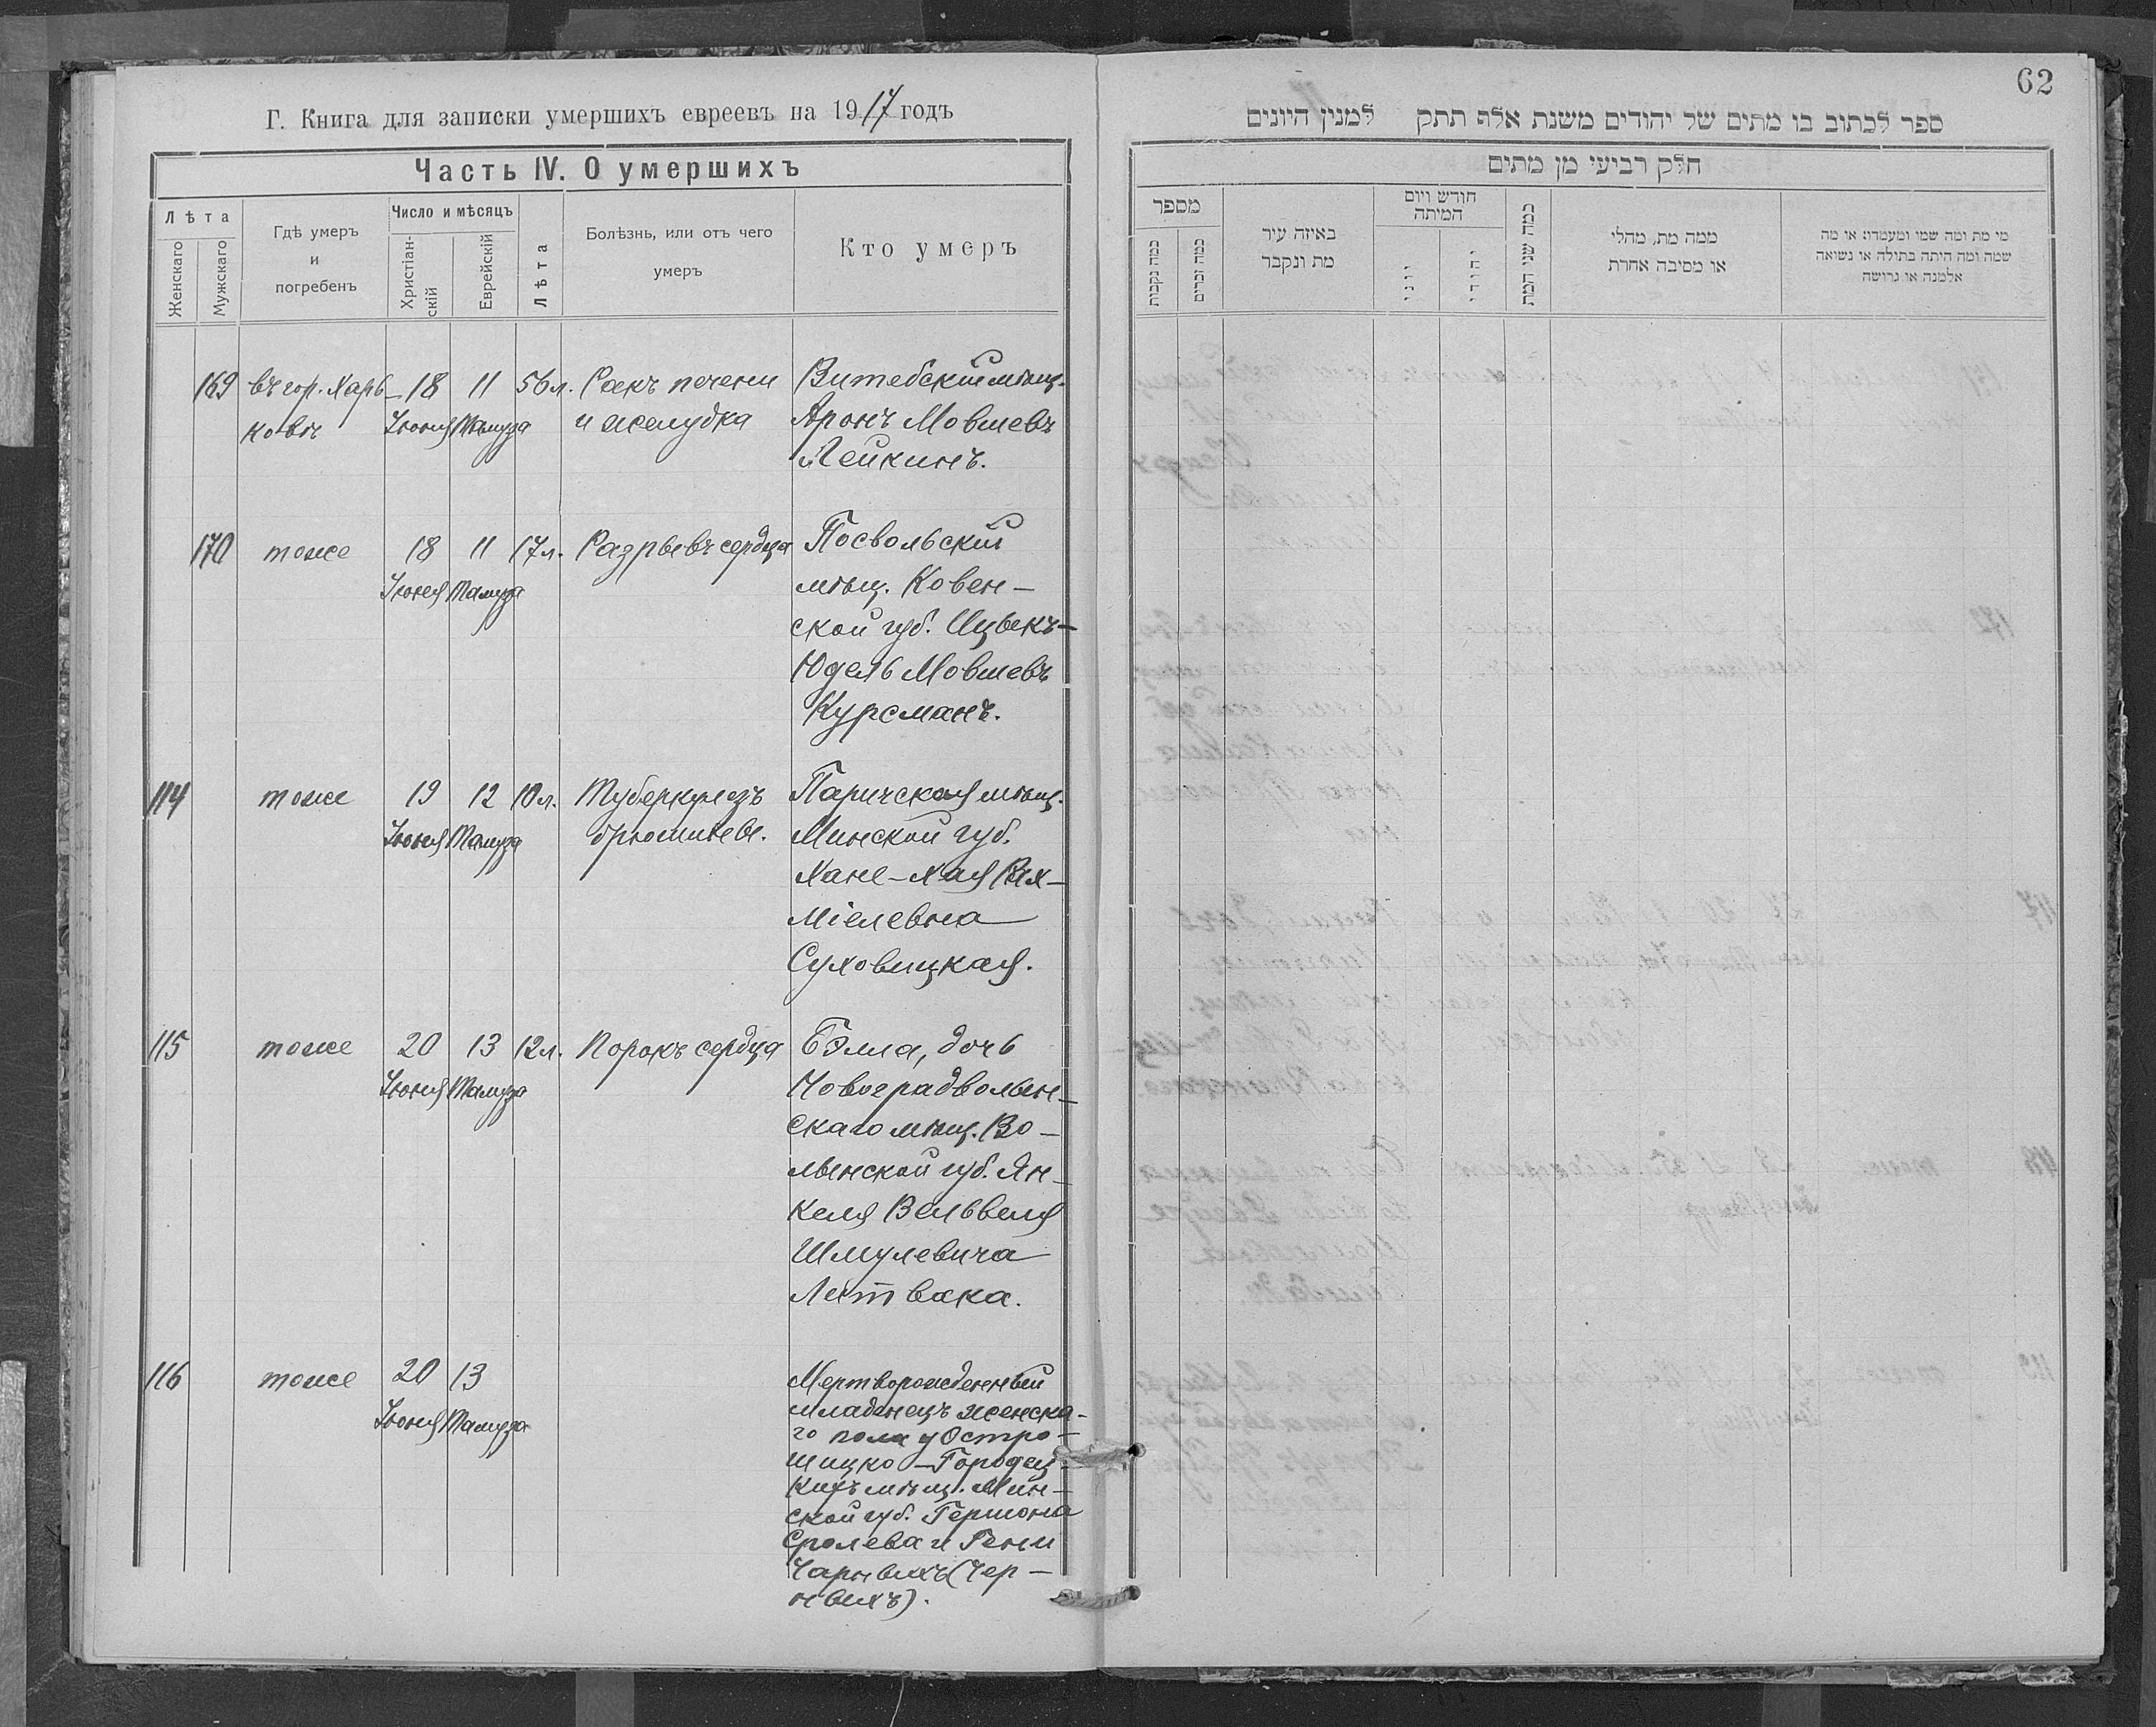 Г. Книга для записки умершихъ евреевъ на 1917 годъ
Часть IV. О умершихъ
Лѣта
Женскаго
Мужскаго
Гдѣ умеръ
и
погребенъ
Число и мѣсяцъ
Христіан-
скій
Еврейскій
Лѣта
Болѣзнь, или отъ чего
умеръ
Кто умеръ
169 въ гор. Харь- 18 11 56 л. Ракъ печени Витебскій мѣщ.
ковѣ Іюня Тамуза и желудка Аронъ Мовшевъ
Лейкинъ.
170 тоже 18 11 17 л. Разрывъ сердца Посвольскій
Іюня Тамуза мѣщ. Ковен-
ской губ. Ицыкъ-
Юдель Мовшевъ
Курсманъ.
114 тоже 19 12 10 л. Туберкулезъ Паричская мѣщ.
Іюня Тамуза брюшины. Минской губ.
Хане-Хая Рах-
міелевна
Суховицкая.
115 тоже 20 13 12 л. Порокъ сердца Бэлла, дочь
Іюня Тамуза Новоградволын-
скаго мѣщ. Во-
лынской губ. Ян-
келя Вельвеля
Шмулевича
Литвака.
116 тоже 20 13 Мертворожденный
Іюня Тамуза младенецъ женска-
го пола у Остро-
шицко-Городец-
кихъ мѣщ. Мин-
ской губ. Гершона
Сролева и Гени
Чарныхъ (Чер-
ныхъ).
62
ספר לכתוב בו מתים של יהודים משנת אלף תתק למנין היונים
חלק רביעי מן מתים
מספר
כמה נקבות
כמה זכרים
באיזה עיר
מת ונקבר
חודש ויום
המיתה
יוני
יהודי
כמה שני המת
ממה מת, מחלי
או מסיבה אחרת
מי מת ומה שמו ומעמדו: או מה
שמה ומה היתה בתולה או נשואה
אלמנה או גרושה